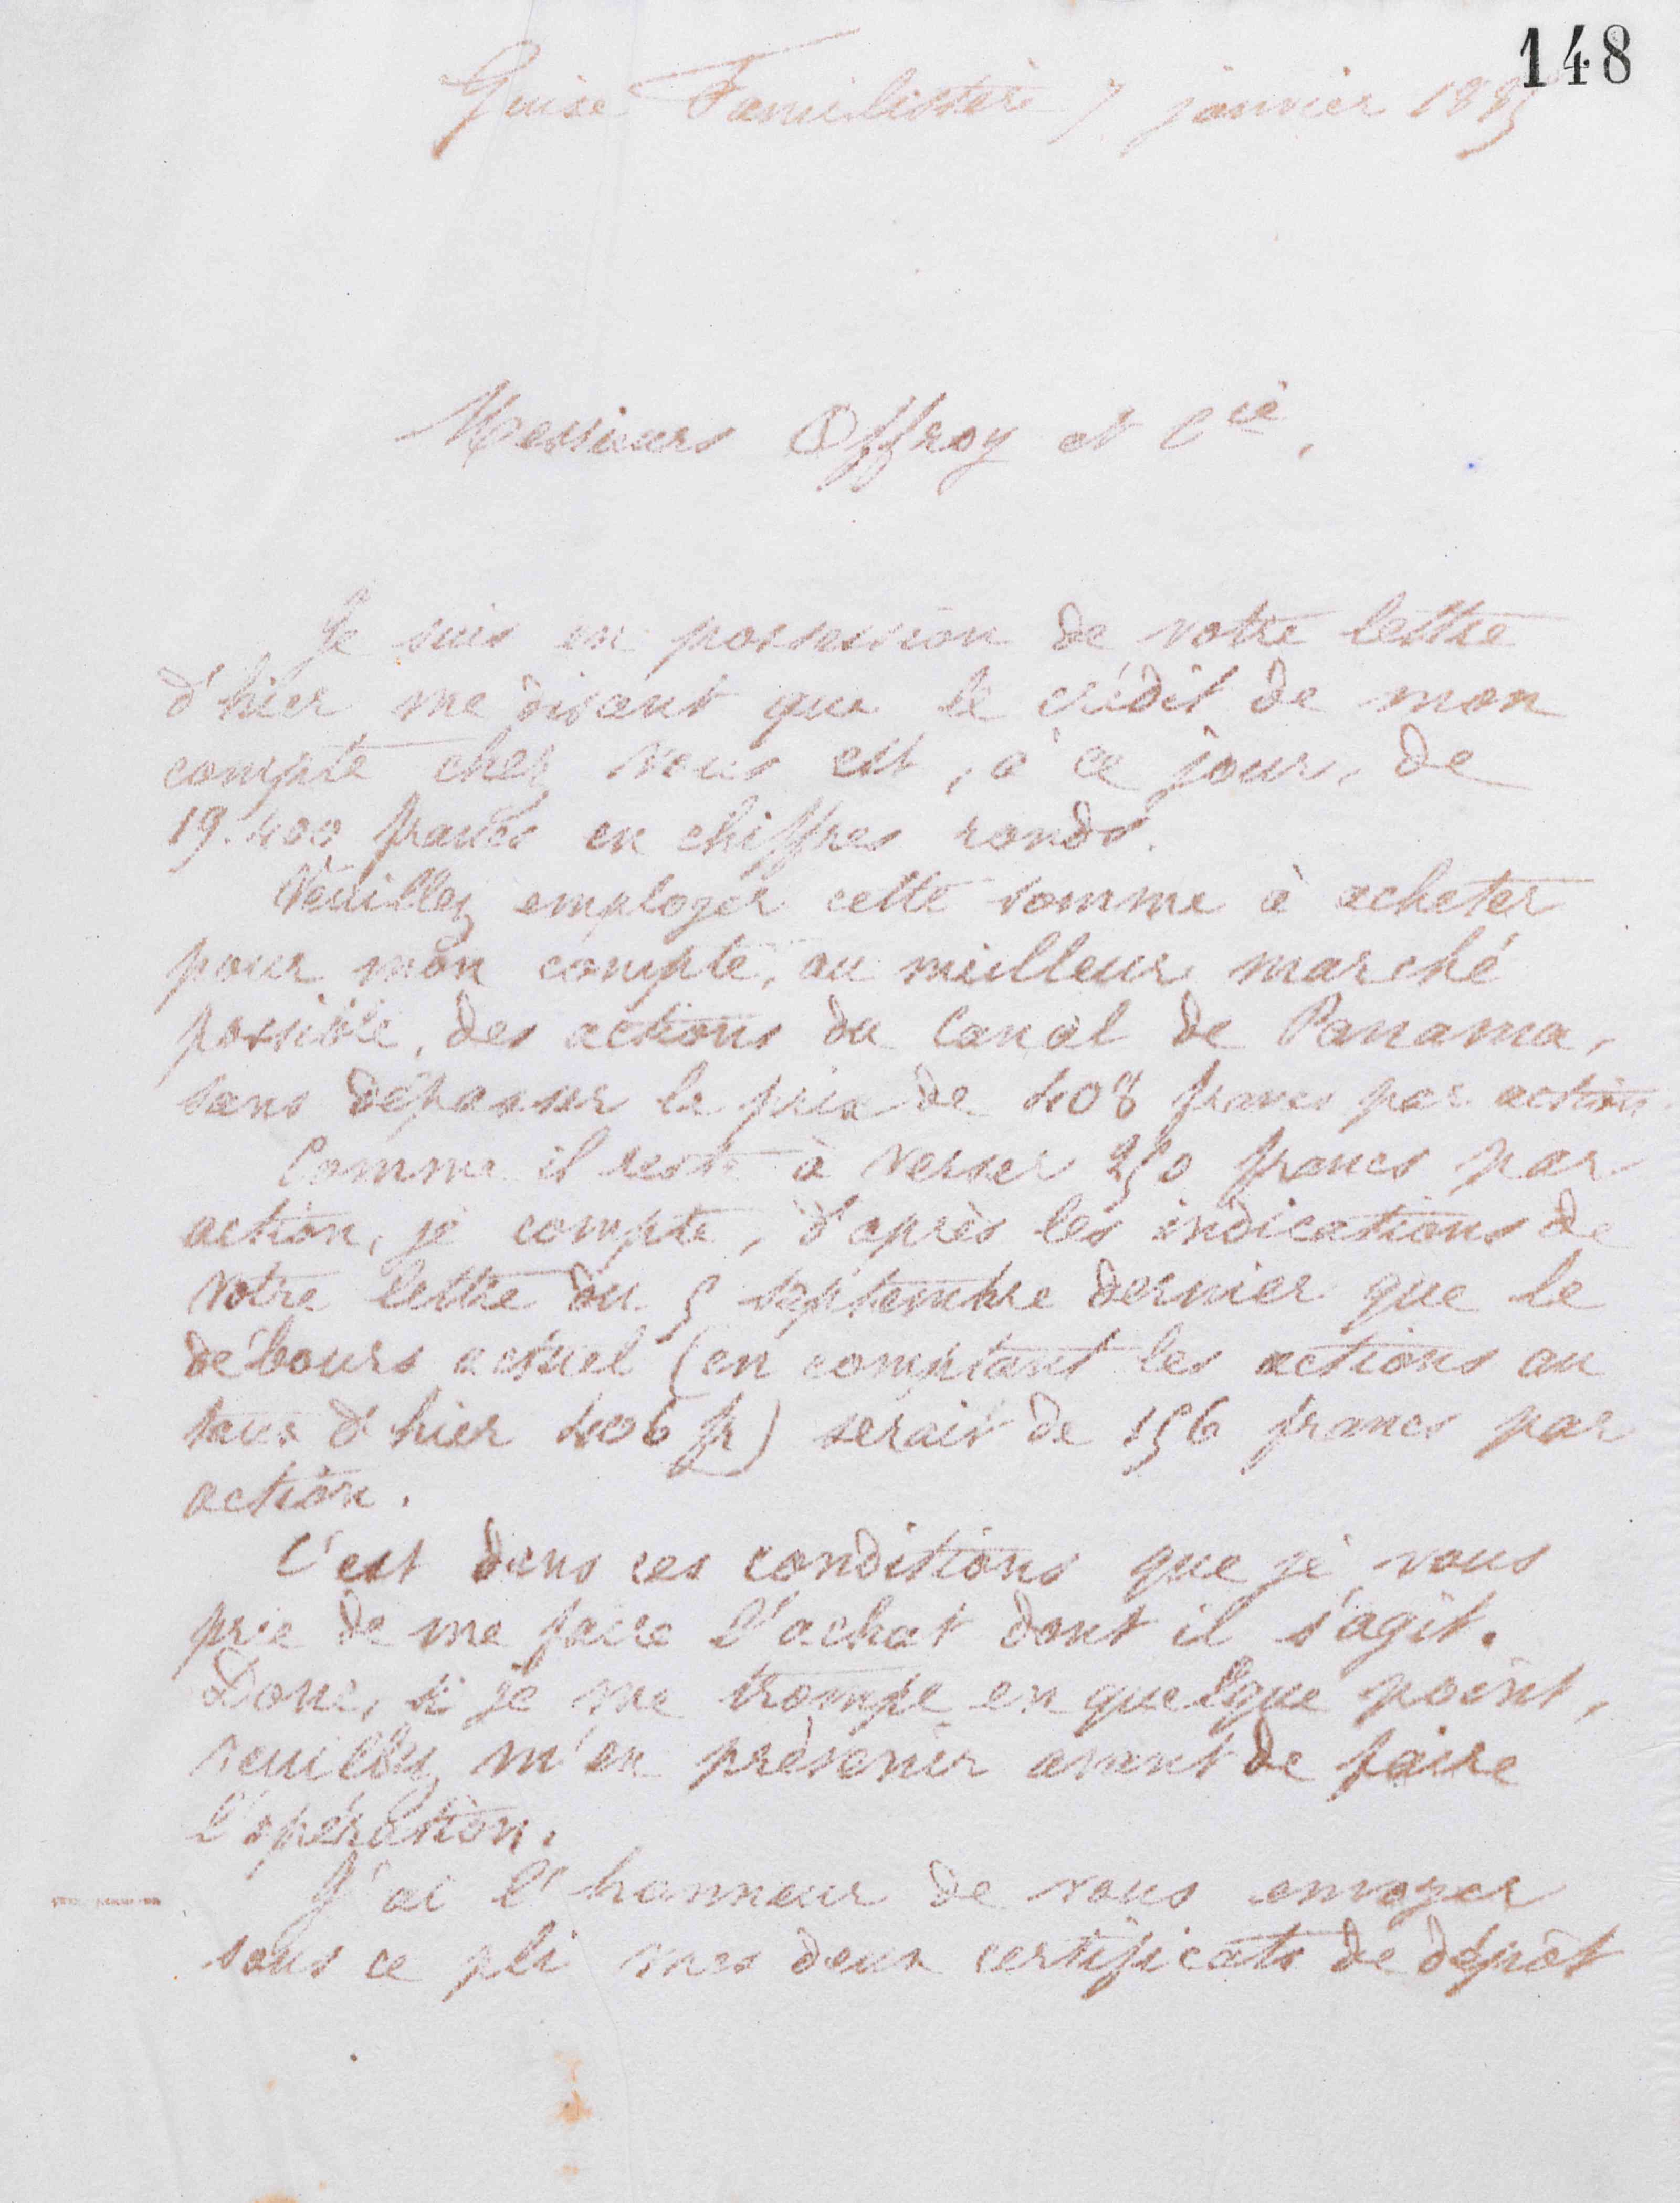 148
Guise Familistère 7 janvier 1887
Messieurs Offroy et Cie,
Je suis en possession de votre lettre
d'hier me disant que le crédit de mon
compte chez vous est, à ce jour, de
19.400 francs en chiffres ronds.
Veuillez employer cette somme à acheter
pour mon compte, au meilleur marché
possible, des actions du Canal de Panama,
sans dépasser le prix de 408 francs par action.
Comme il reste à verser 250 francs par
action, je compte, d'après les indications de
votre lettre du 5 septembre dernier que le
débours actuel (en comptant les actions au
taux d'hier 406 fr) serait de 156 francs par
action.
C'est dans ces conditions que je vous
prie de me faire l'achat dont il s'agit.
Donc, si je me trompe en quelque point,
veuillez m'en prévenir avant de faire
l'opération.
J'ai l'honneur de vous envoyer
sous ce pli mes deux certificats de dépôt